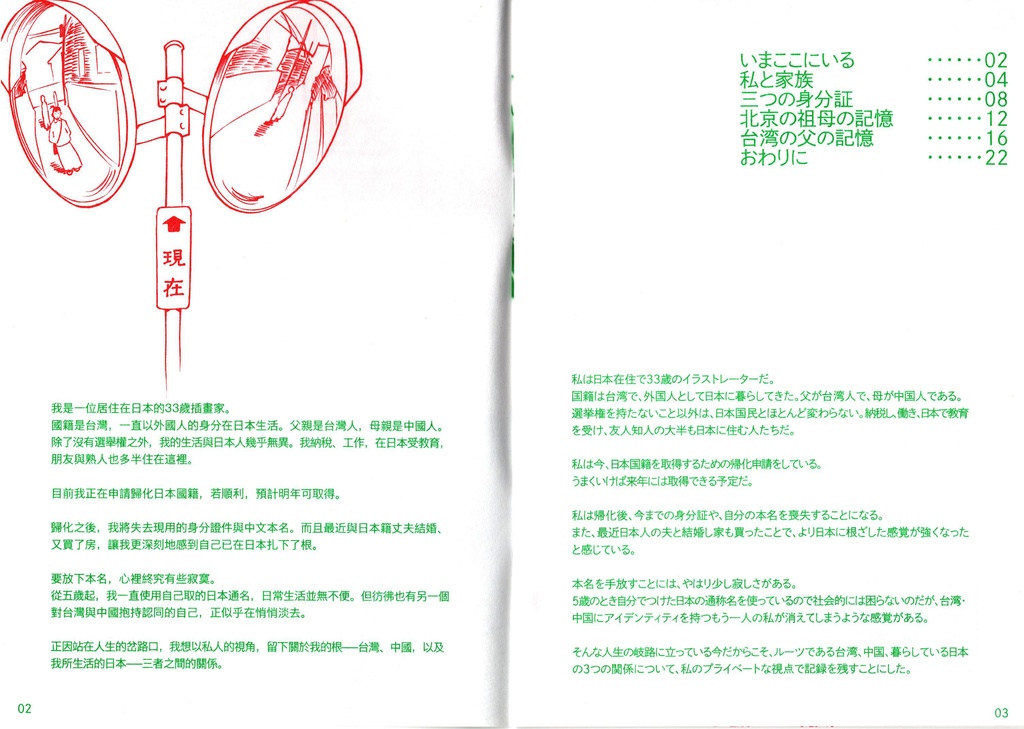 現
在
我是一位居住在日本的33歲插畫家。
國籍是台灣，一直以外國人的身分在日本生活。父親是台灣人，母親是中國人。
除了沒有選舉權之外，我的生活與日本人幾乎無異。我納稅、工作，在日本受教育，
朋友與熟人也多半住在這裡。
目前我正在申請歸化日本國籍，若順利，預計明年可取得。
歸化之後，我將失去現用的身分證件與中文本名。而且最近與日本籍丈夫結婚、
又買了房，讓我更深刻地感到自己已在日本扎下了根。
要放下本名，心裡終究有些寂寞。
從五歲起，我一直使用自己取的日本通名，日常生活並無不便。但彷彿也有另一個
對台灣與中國抱持認同的自己，正似乎在悄悄淡去。
正因站在人生的岔路口，我想以私人的視角，留下關於我的根——台灣、中國，以及
我所生活的日本——三者之間的關係。
02
いまここにいる ······02
私と家族 ······04
三つの身分証 ······08
北京の祖母の記憶 ······12
台湾の父の記憶 ······16
おわりに ······22
私は日本在住で33歳のイラストレーターだ。
国籍は台湾で、外国人として日本に暮らしてきた。父が台湾人で、母が中国人である。
選挙権を持たないこと以外は、日本国民とほとんど変わらない。納税し、働き、日本で教育
を受け、友人知人の大半も日本に住む人たちだ。
私は今、日本国籍を取得するための帰化申請をしている。
うまくいけば来年には取得できる予定だ。
私は帰化後、今までの身分証や、自分の本名を喪失することになる。
また、最近日本人の夫と結婚し家も買ったことで、より日本に根ざした感覚が強くなった
と感じている。
本名を手放すことには、やはり少し寂しさがある。
5歳のとき自分でつけた日本の通称名を使っているので社会的には困らないのだが、台湾・
中国にアイデンティティを持つもう一人の私が消えてしまうような感覚がある。
そんな人生の岐路に立っている今だからこそ、ルーツである台湾、中国、暮らしている日本
の3つの関係について、私のプライベートな視点で記録を残すことにした。
03